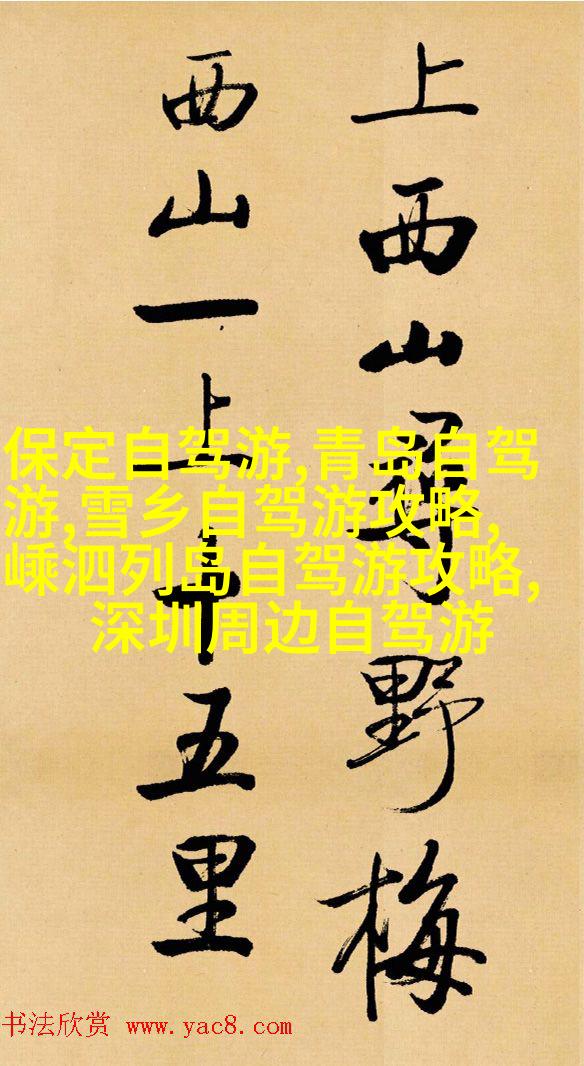 上西山尋野梅
西山一上十五里
保定自驾游,青岛自驾
游,雪乡自驾游攻略,
嵊泗列岛自驾游攻略,
深圳周边自驾游
书法欣赏 www.yac8.com